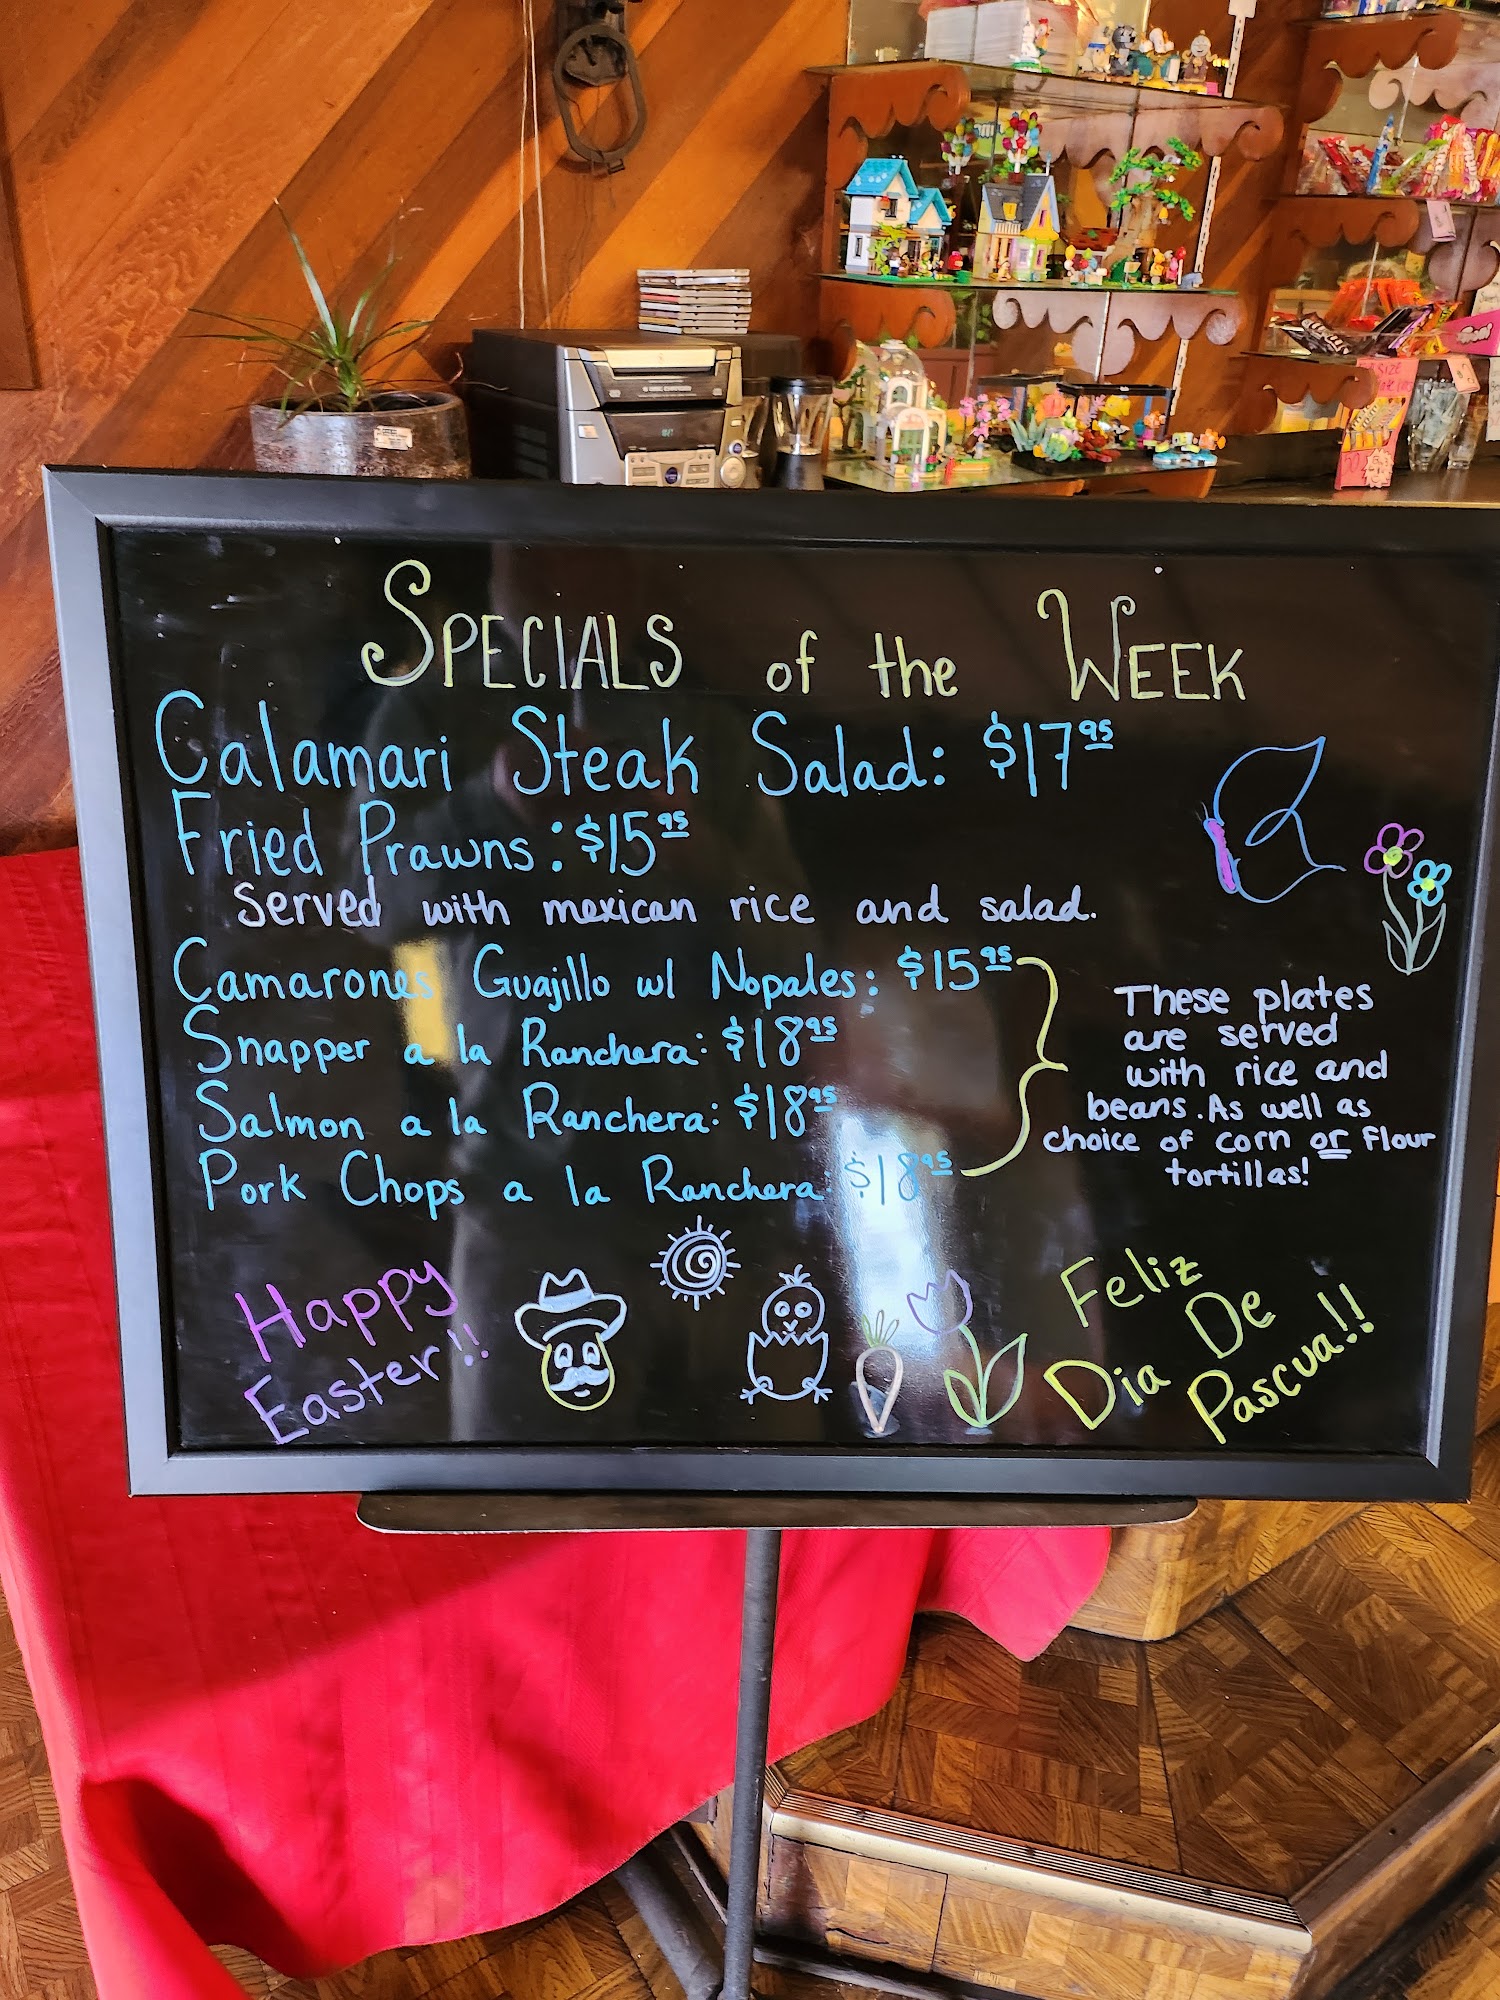 SPECIALS of the WEEK
Calamari Steak Salad: $17.95
Fried Prawns: $15.95
Served with mexican rice and salad.
Camarones Guajillo w/ Nopales: $15.95
Snapper a la Ranchera: $18.95
Salmon a la Ranchera: $18.95
Pork Chops a la Ranchera: $18.95
These plates
are served
with rice and
beans. As well as
choice of corn or flour
tortillas!
Happy
Easter!!
Feliz
Dia De
Pascua!!